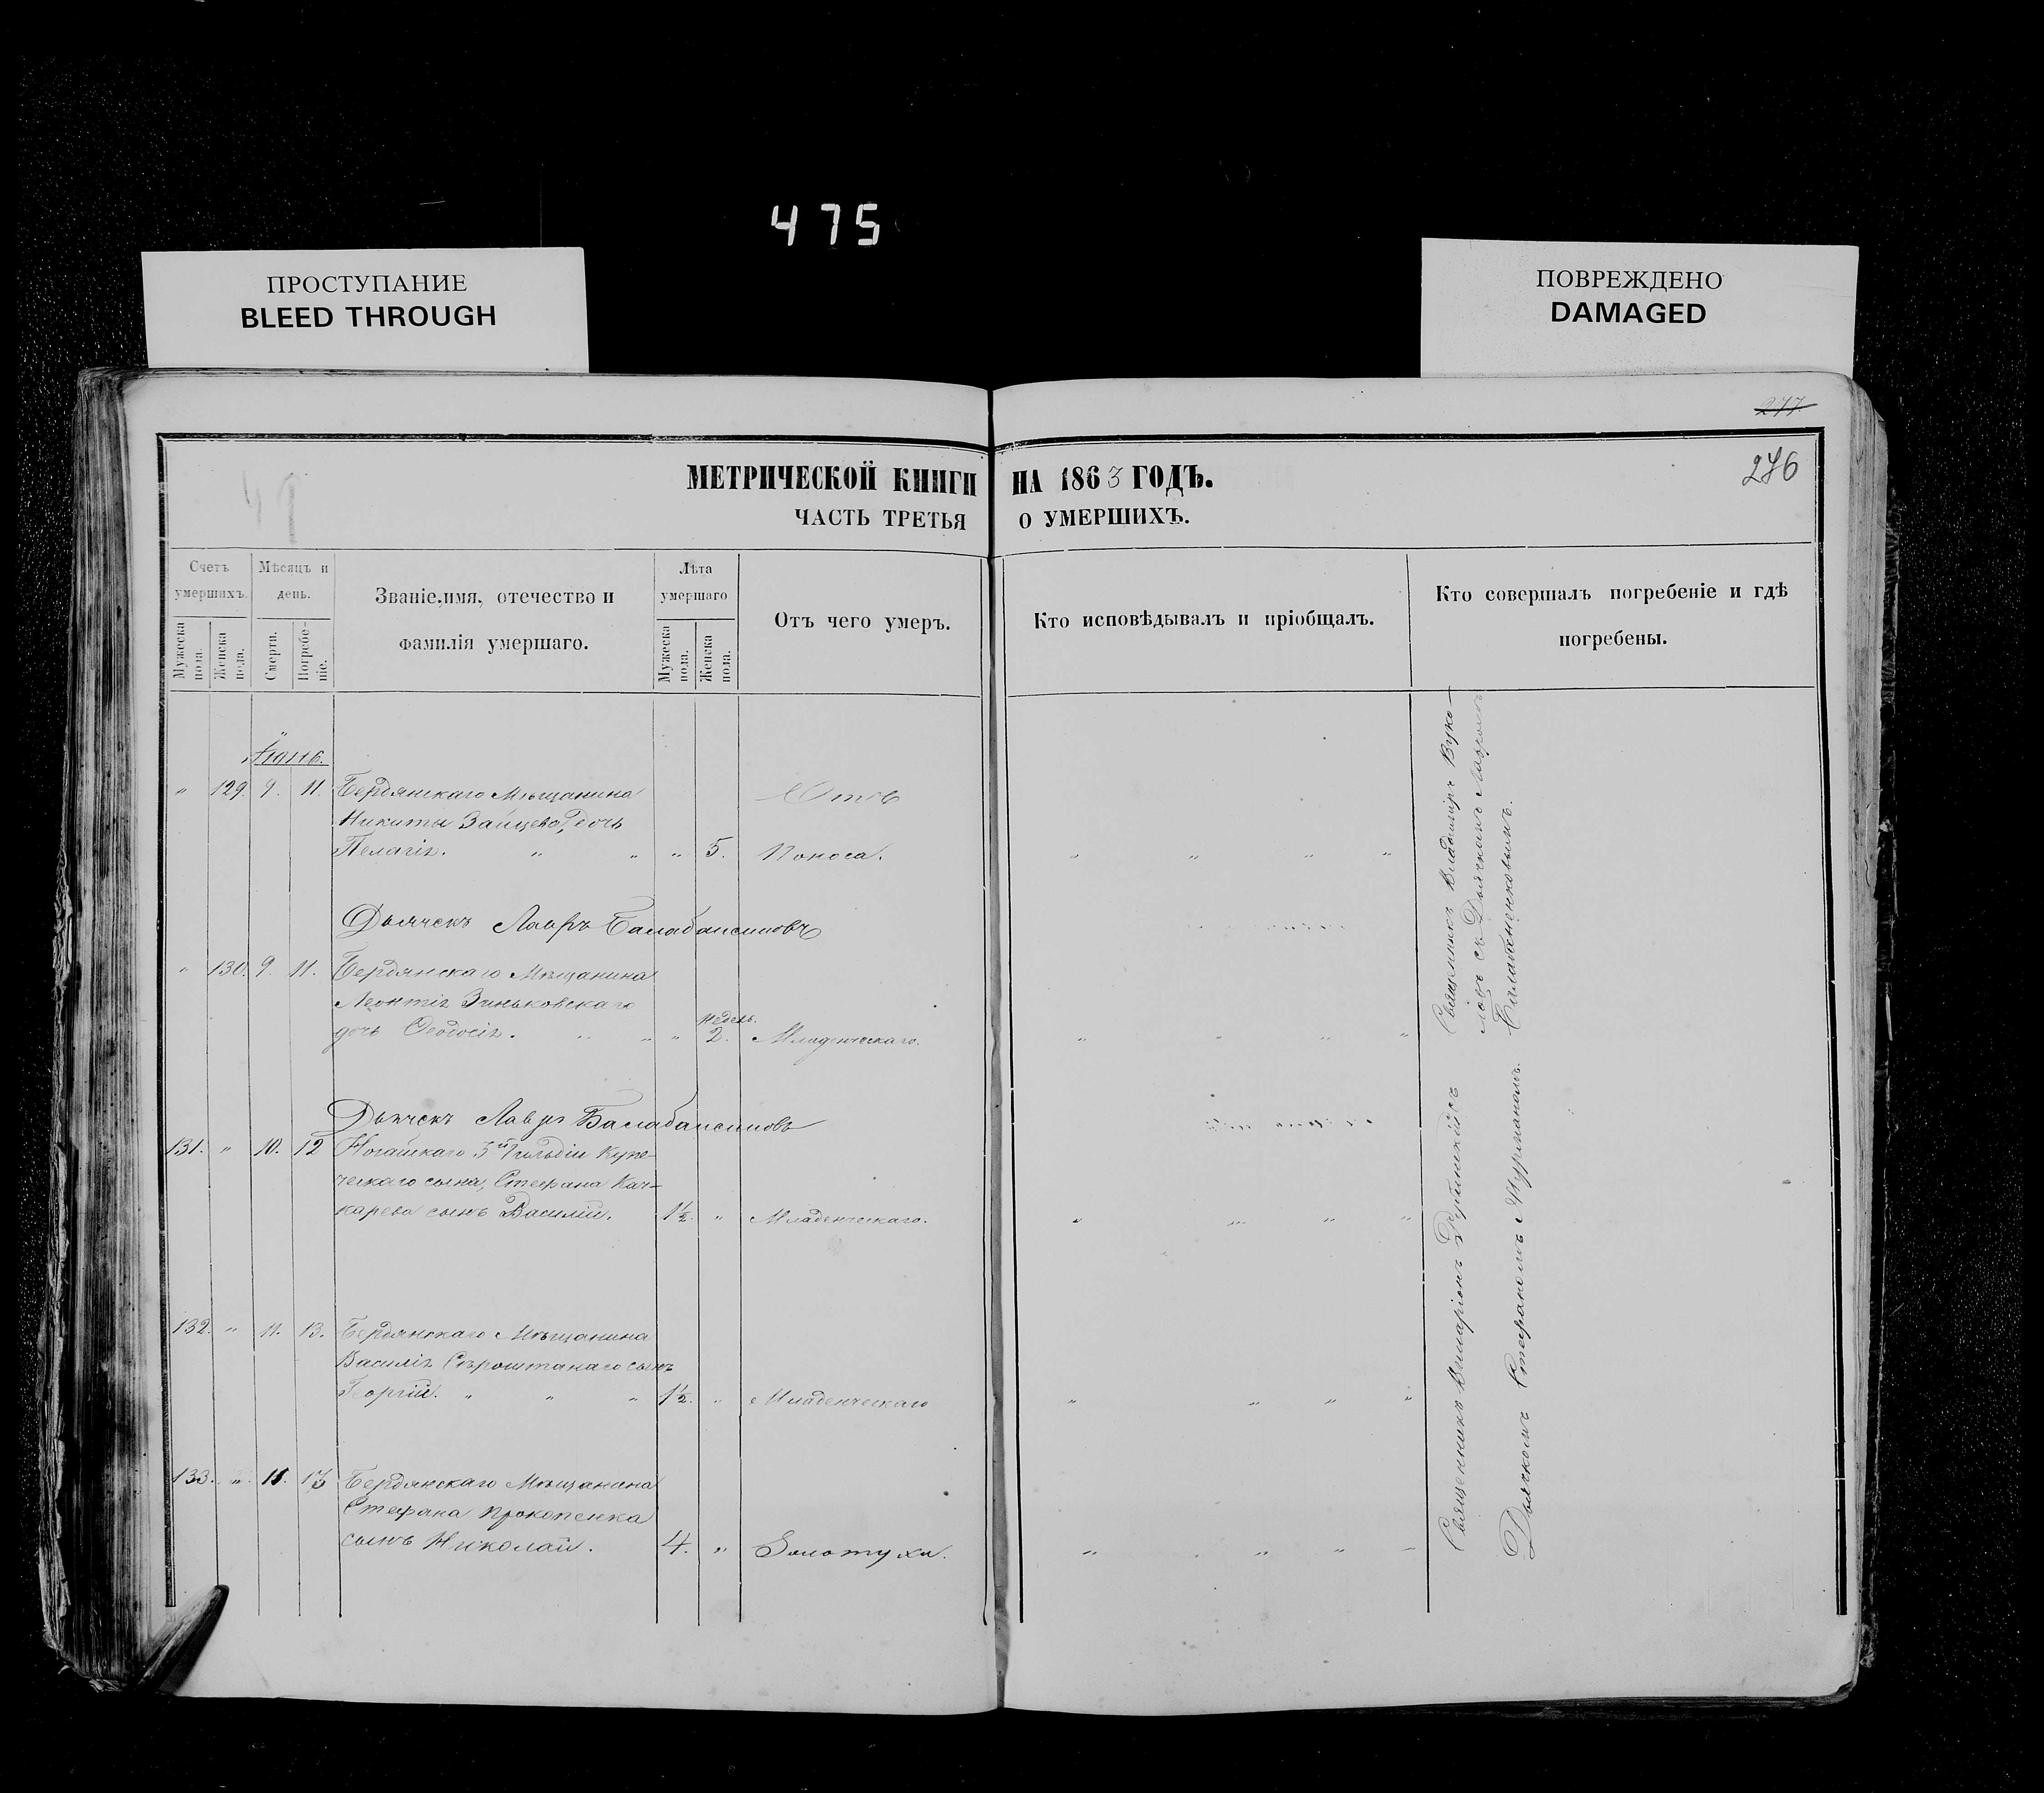 475
ПРОСТУПАНИЕ
BLEED THROUGH
ПОВРЕЖДЕНО
DAMAGED
277.
276
МЕТРИЧЕСКОЙ КНИГИ НА 1863 ГОДЪ.
ЧАСТЬ ТРЕТЬЯ О УМЕРШИХЪ.
Счетъ умершихъ.
Мужеска пола.
Женска пола.
Мѣсяцъ и день.
Смерти.
Погребе-
ніе.
Званіе, имя, отечество и
фамилія умершаго.
Лѣта умершаго
Мужеска пола.
Женска пола.
Отъ чего умеръ.
Кто исповѣдывалъ и пріобщалъ.
Кто совершалъ погребеніе и гдѣ
погребены.
Іюнь.
" 129. 9. 11. Бердянскаго Мѣщанина Отъ
Никиты Зайцева, дочь
Пелагія. " " " 5. Поноса. " " " "
Дьячекъ Лавръ Балабаненковъ
" 130. 9. 11. Бердянскаго Мѣщанина
Леонтія Зиньковскаго
недель.
дочь Ѳеодосія. " " " 2. Младенческаго. " " " "
Дьячекъ Лавръ Балабаненковъ
131. " 10. 12 Ногайскаго 3й Гильдіи Купе-
ческаго сына, Стефана Кач-
карева сынъ Василій. 1½. " Младенческаго. " " " "
132. " 11. 13. Бердянскаго Мѣщанина
Василія сынъ
Георгій. " " " 1½. " Младенческаго " " " "
133. " 11. 13 Бердянскаго Мѣщанина
Стефана Прокопенка
сынъ Николай. 4. " Золотуха. " " " "
Священникъ Владиміръ Вуко-
ловъ съ Дьячкомъ Лавромъ
Балабаненковымъ.
Священникъ Иларіонъ
Дьячкомъ Стефаномъ Мурманомъ.